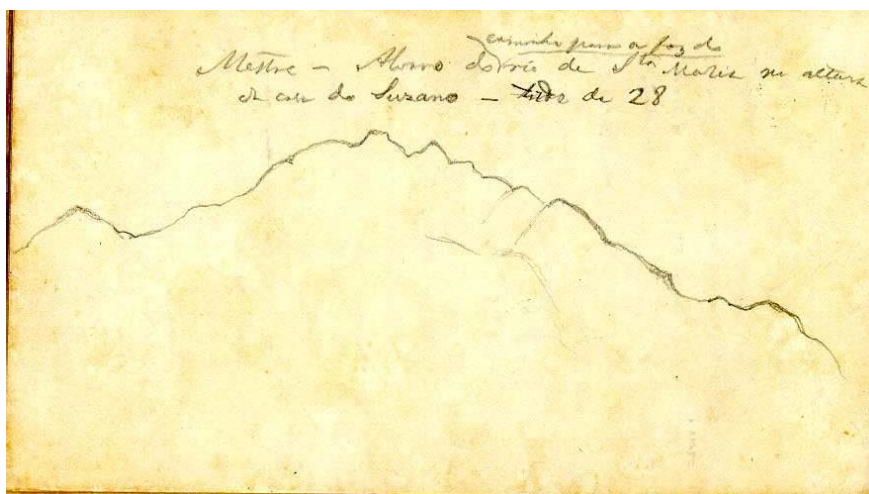 caminho para a foz do
Mestre – Morro do rio de Sta Maria na altura
da casa do Suzano – de 28